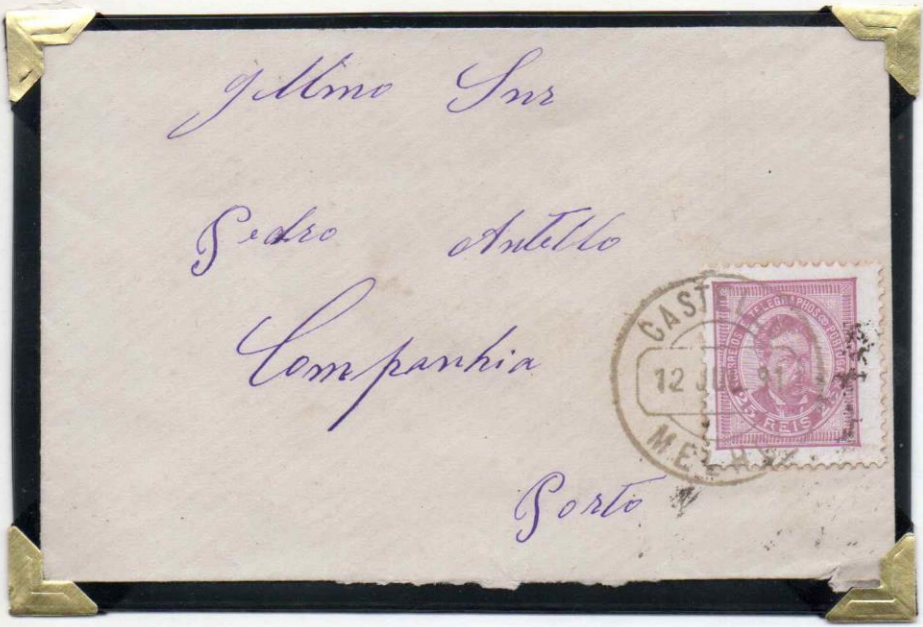 Illmo Snr
Pedro Antello
Companhia
Porto
CAST
12 JU 91
ME
CORREIOS E TELEGRAPHOS DE PORTUGAL
25 REIS